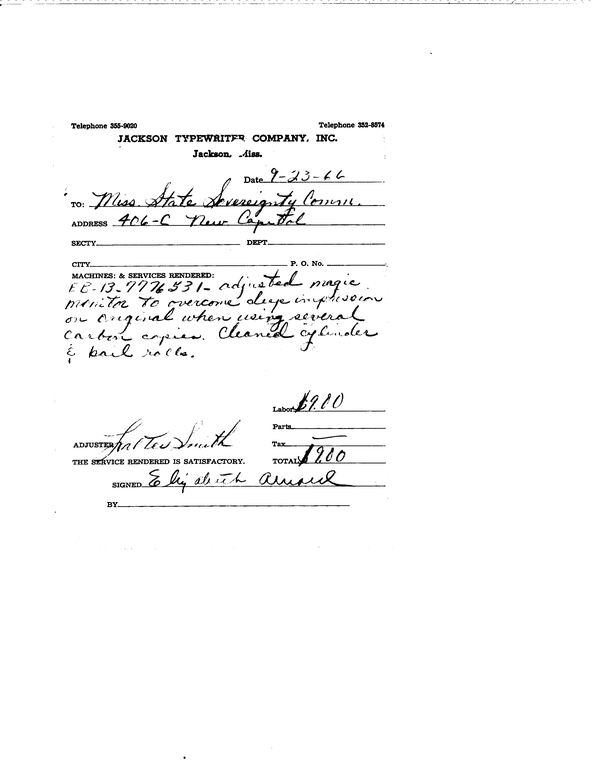 Telephone 355-9020 Telephone 352-8574
JACKSON TYPEWRITER COMPANY, INC.
Jackson, Miss.
Date 9-23-66
TO: Miss. State Sovereignty Comm.
ADDRESS 406-C New Capitol
SECTY. DEPT.
CITY P. O. No.
MACHINES: & SERVICES RENDERED:
adjusted magic
monitor to overcome deep impression
on original when using several
Carbon copies. Cleaned cylinder
& bail rolls.
Labor $9.00
Parts
ADJUSTER Smith Tax —
THE SERVICE RENDERED IS SATISFACTORY. TOTAL $9.00
SIGNED Elizabeth Arnold
BY